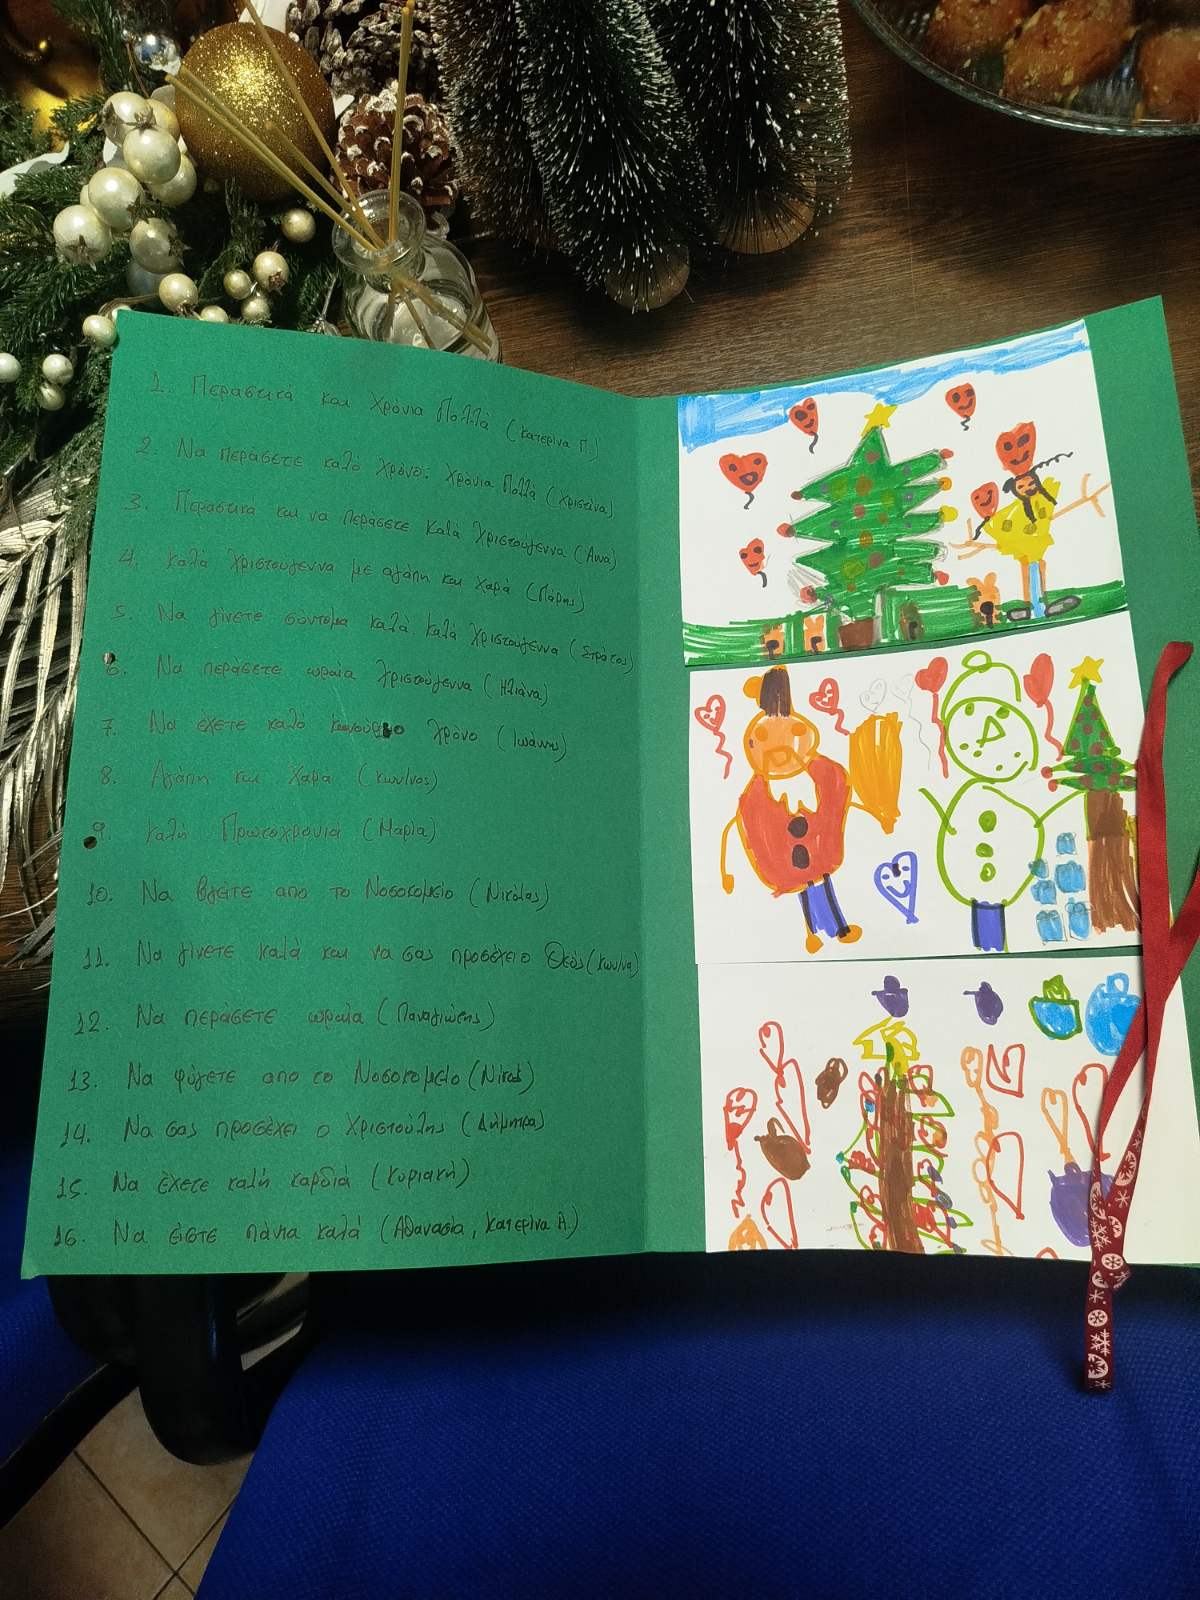 1. Περαστικά και Χρόνια Πολλά (Κατερίνα Π.)
2. Να περάσετε καλό χρόνο. Χρόνια Πολλά (Χριστίνα)
3. Περαστικά και να περάσετε Καλά Χριστούγεννα (Άννα)
4. Καλά Χριστούγεννα με αγάπη και χαρά (Πάρης)
5. Να γίνετε σύντομα καλά καλά Χριστούγεννα (Στράτος)
6. Να περάσετε ωραία Χριστούγεννα (Ηλιάνα)
7. Να έχετε καλό καινούριο χρόνο (Ιωάννης)
8. Αγάπη και Χαρά (Κων/νος)
9. Καλή Πρωτοχρονιά (Μαρία)
10. Να βγείτε απο το Νοσοκομείο (Νικόλας)
11. Να γίνετε καλά και να σας προσέχει ο Θεός (Κων/να)
12. Να περάσετε ωραία (Παναγιώτης)
13. Να φύγετε απο το Νοσοκομείο
14. Να σας προσέχει ο Χριστούλης (Δήμητρα)
15. Να έχετε καλή καρδιά (Κυριακή)
16. Να είστε πάντα καλά (Αθανασία, Κατερίνα Α.)